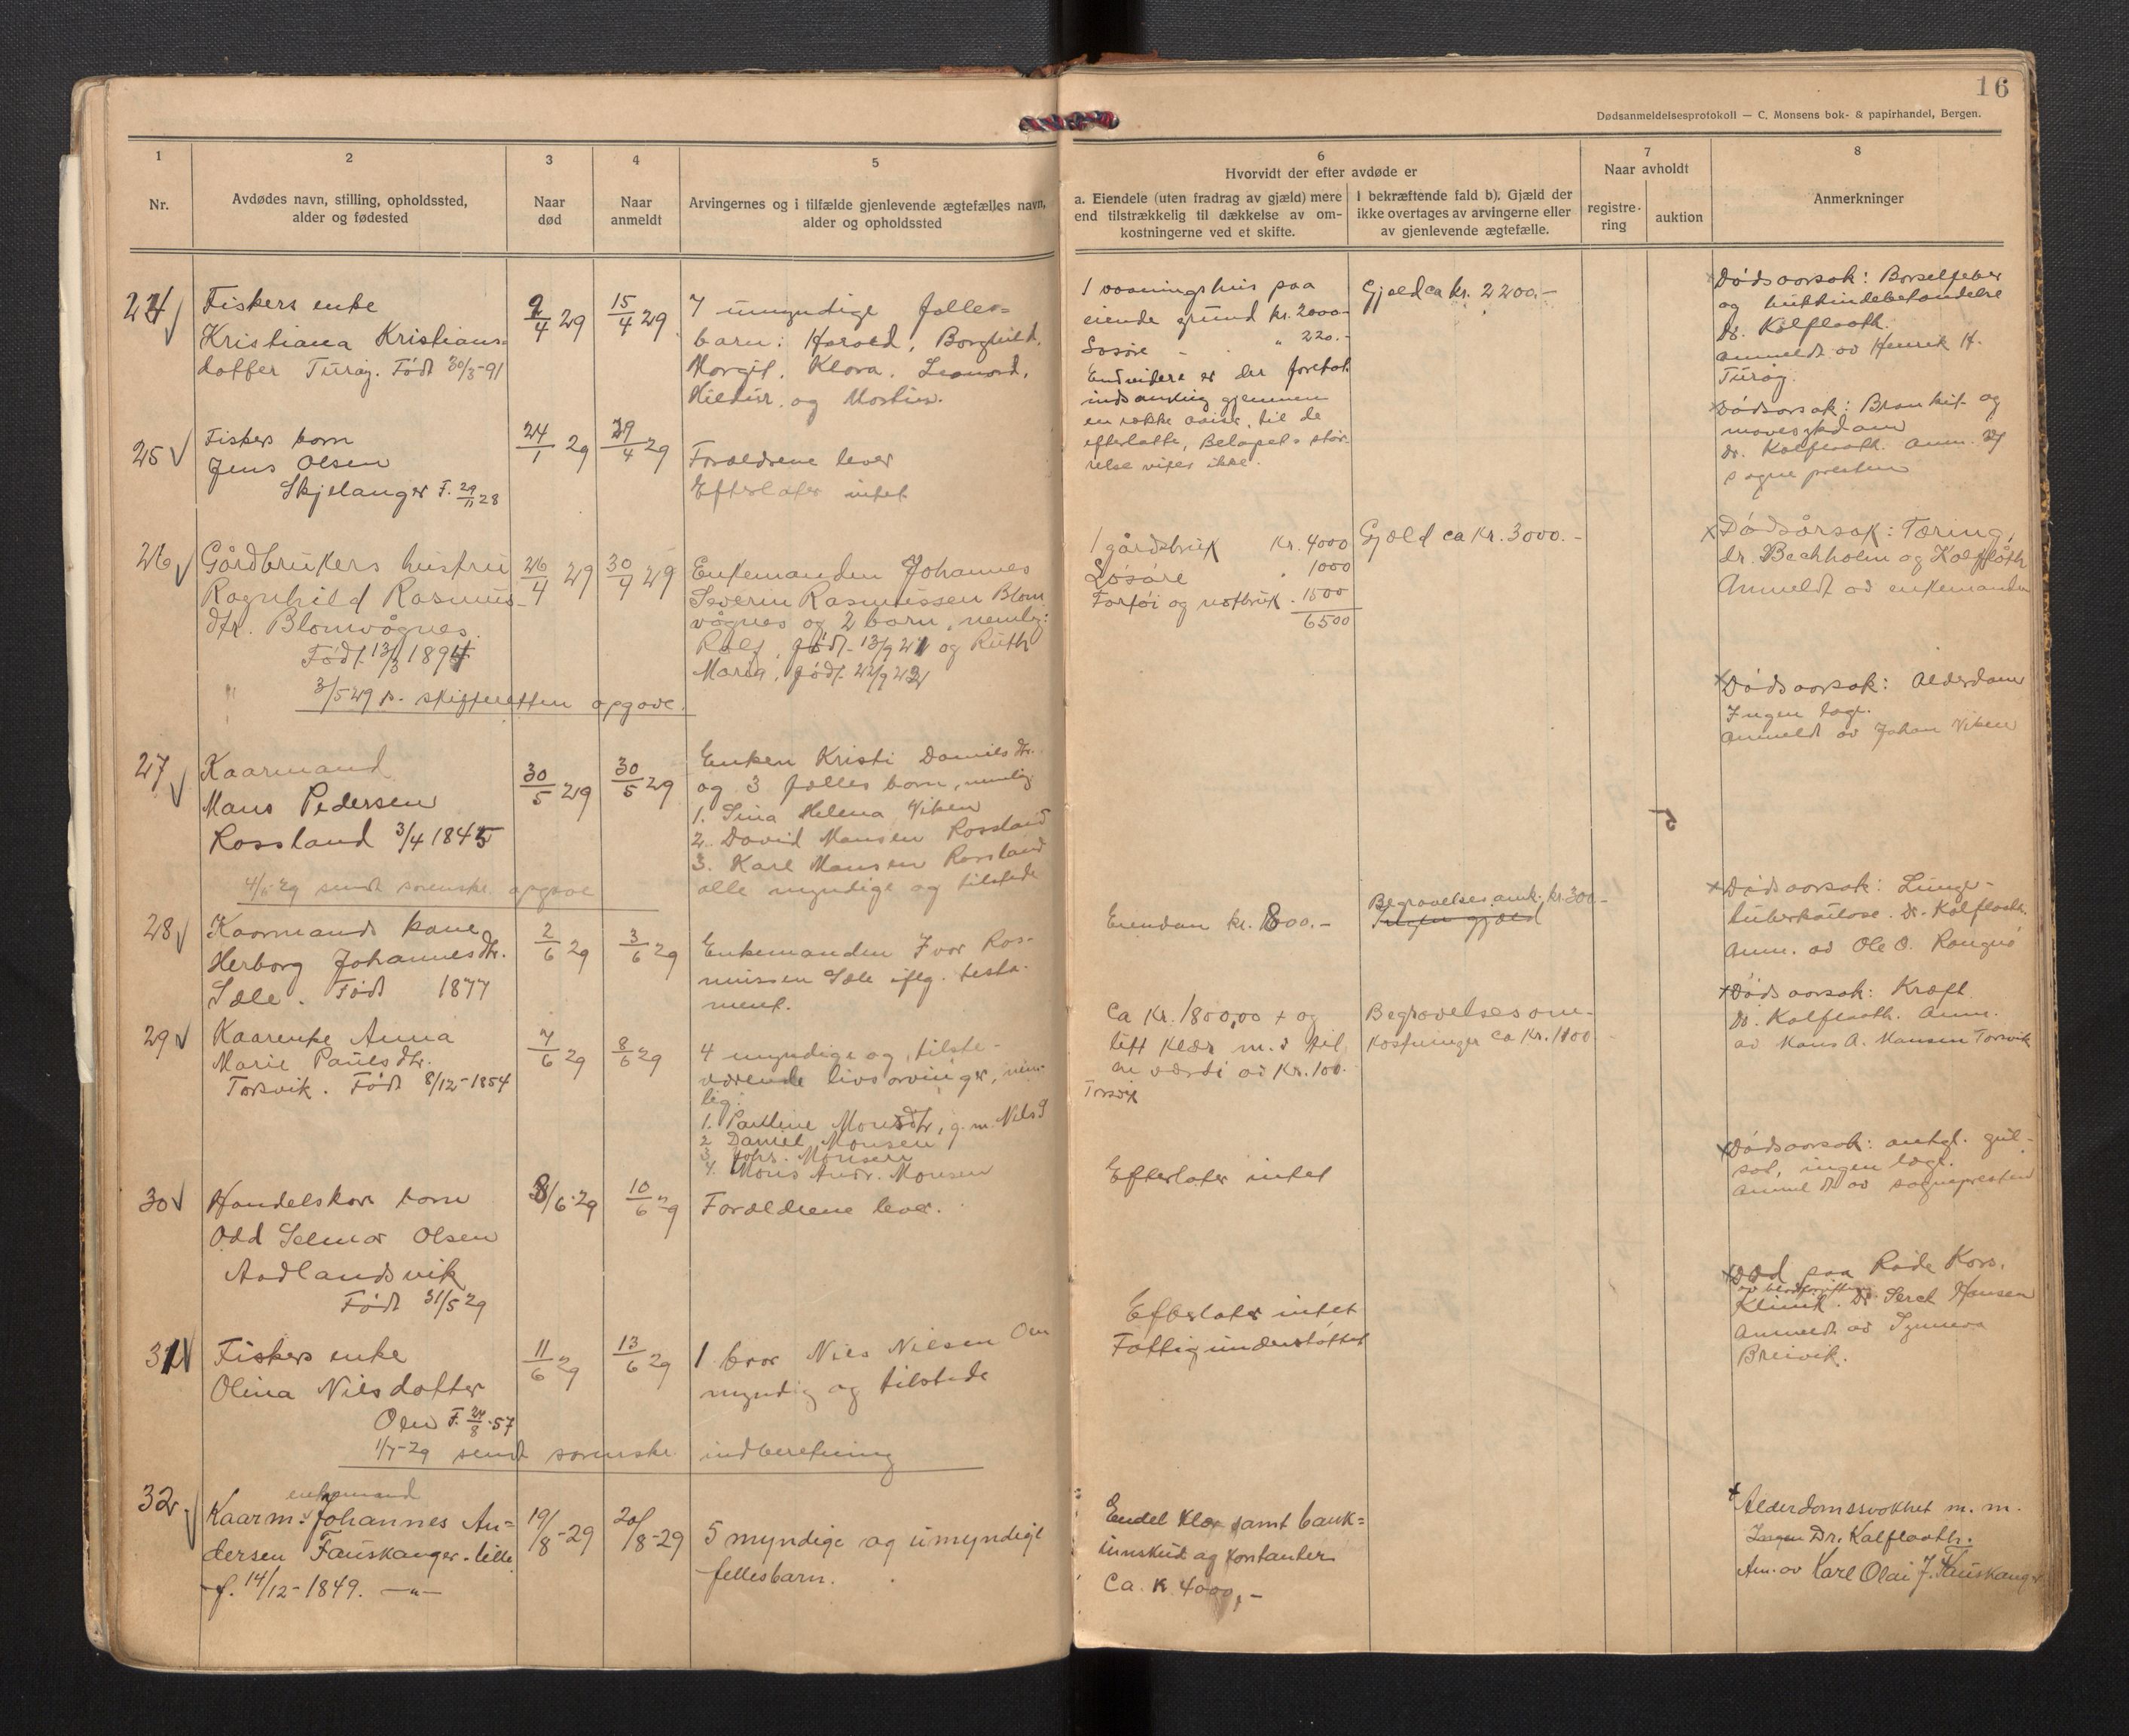 16
Dødsanmeldelsesprotokoll — C. Monsens bok- & papirhandel, Bergen.
1
Nr.
2
Avdødes navn, stilling, opholdssted,
alder og fødested
3
Naar
død
4
Naar
anmeldt
5
Arvingernes og i tilfælde gjenlevende ægtefælles navn,
alder og opholdssted
6
Hvorvidt der efter avdøde er
a. Eiendele (uten fradrag av gjæld) mere
end tilstrækkelig til dækkelse av om-
kostningerne ved et skifte.
I bekræftende fald b). Gjæld der
ikke overtages av arvingerne eller
av gjenlevende ægtefælle.
7
Naar avholdt
registre-
ring
auktion
8
Anmerkninger
24
Fiskers enke
Kristiana Kristians-
datter Turøy. Født 30/3-91
9/4 29
15/4 29
7 umyndige fælles-
barn: Harald, Borghild,
Margit, Klara, Leonard,
Hildur, og Mostin.
1 vaaningshus paa
eiende grund kr. 2000-
Løsøre - " 220.-
Endvidere er der foretat
indsamling gjennem
en række aviser, til de
efterlatte, Beløpets stør-
relse vites ikke.
Gjæld ca kr. 2200.-
Dødsaarsak: Barselfeber
og
Dr. Kalflaath.
anmeldt av Henrik H.
Turøy.
25
Fiskers barn
Jens Olsen
Skjelanger F. 29/11 28
24/1 29
29/4 29
Forældrene lever
Efterlater intet
Dødsorsak: Bronkit og
mavesykdom
Dr. Kalflaath. Anm. av
sognepresten
26
Gårdbrukers hustru
Ragnhild Rasmus-
dtr. Blomvågnes.
Født 13/3 1894
26/4 29
30/4 29
Enkemanden Johannes
Severin Rasmussen Blom
vågnes og 2 barn, nemlig:
Rolf, født 13/9 21 og Ruth
Maria, født 22/9 23
3/5 29 p. skifteretten opgave.
1 gårdsbruk Kr. 4000
Løsøre " 1000
Farføi og notbruk - 1500
6500
Gjæld ca Kr. 3000.-
Dødsårsak: Tæring,
dr. Bachholm og Kalflåth
Anmeldt av enkemanden
27
Kaarmand
Mans Pedersen
Rossland 3/4 1845
30/5 29
30/5 29
Enken Kristi Danielsdtr.
og 3 fælles barn, nemlig
1. Sina Helena Viken
2. David Mansen Rossland
3. Karl Mansen Rossland
alle myndige og tilstede
4/6 29 sendt sorenskr. opgave
Dødsaarsak: Alderdom
Ingen læge.
Anmeldt av Johan Viken
28
Kaarmands kone
Herborg Johannesdtr.
Sæle. Født 1877
2/6 29
3/6 29
Enkemanden Ivar Ras-
mussen Sæle iflg. testa-
ment.
Eiendom kr. 800.-
Begravelses omk. kr. 300-
Ingen gjæld
Dødsaarsak: Lunge-
tuberkulose. Dr. Kalflaath.
Anm. av Ole O. Rongnø
29
Kaarenke Anna
Marie Paulsdtr.
Torsvik. Født 8/12-1854
7/6 29
8/6 29
4 myndige og tilste-
værende livsarvinger, nem-
lig:
1. Pauline Monsdtr, g.m. Nils
2 Daniel Monsen
3 Johs. Monsen
4. Mons Andr. Monsen
Ca Kr. 1800,00 + og
litt klær m.v til
en værdi av Kr. 100.
Torsvik
Begravelsesom-
kostninger ca Kr. 1100
Dødsaarsak: Kræft
Dr. Kalflaath. Anm.
av Mons A. Monsen Torsvik
30
Handelskar barn
Odd Selmar Olsen
Aadlandsvik
Født 31/5 29
8/6 29
10/6 29
Forældrene lever.
Efterlater intet
Dødsaarsak: antgl. gul-
sot, ingen læge.
Anmeldt av sognepresten
31
Fiskers enke
Olina Nilsdatter
Oen F. 24/8-57
11/6 29
13/6 29
1 bror Nils Nilsen Oen
myndig og tilstede
1/7-29 sendt sorenskr. indberetning
Efterlater intet
Fattigunderstøttet
Død paa Røde Kors,
av blodforgiftning
Klinik. Dr. Hansen
Anmeldt av Synneva
Breivik.
32
enkemand
Kaarm. Johannes An-
dersen Fauskanger-lille
f. 14/12-1849. —"—
19/8-29
20/8-29
5 myndige og umyndige
fellesbarn.
Endel klær samt bank-
innskud og kontanter
Ca. K 4000,-
Alderdomssvakhet m.m.
Dr. Kalflaath.
Am. av Karl Olai J. Fauskanger